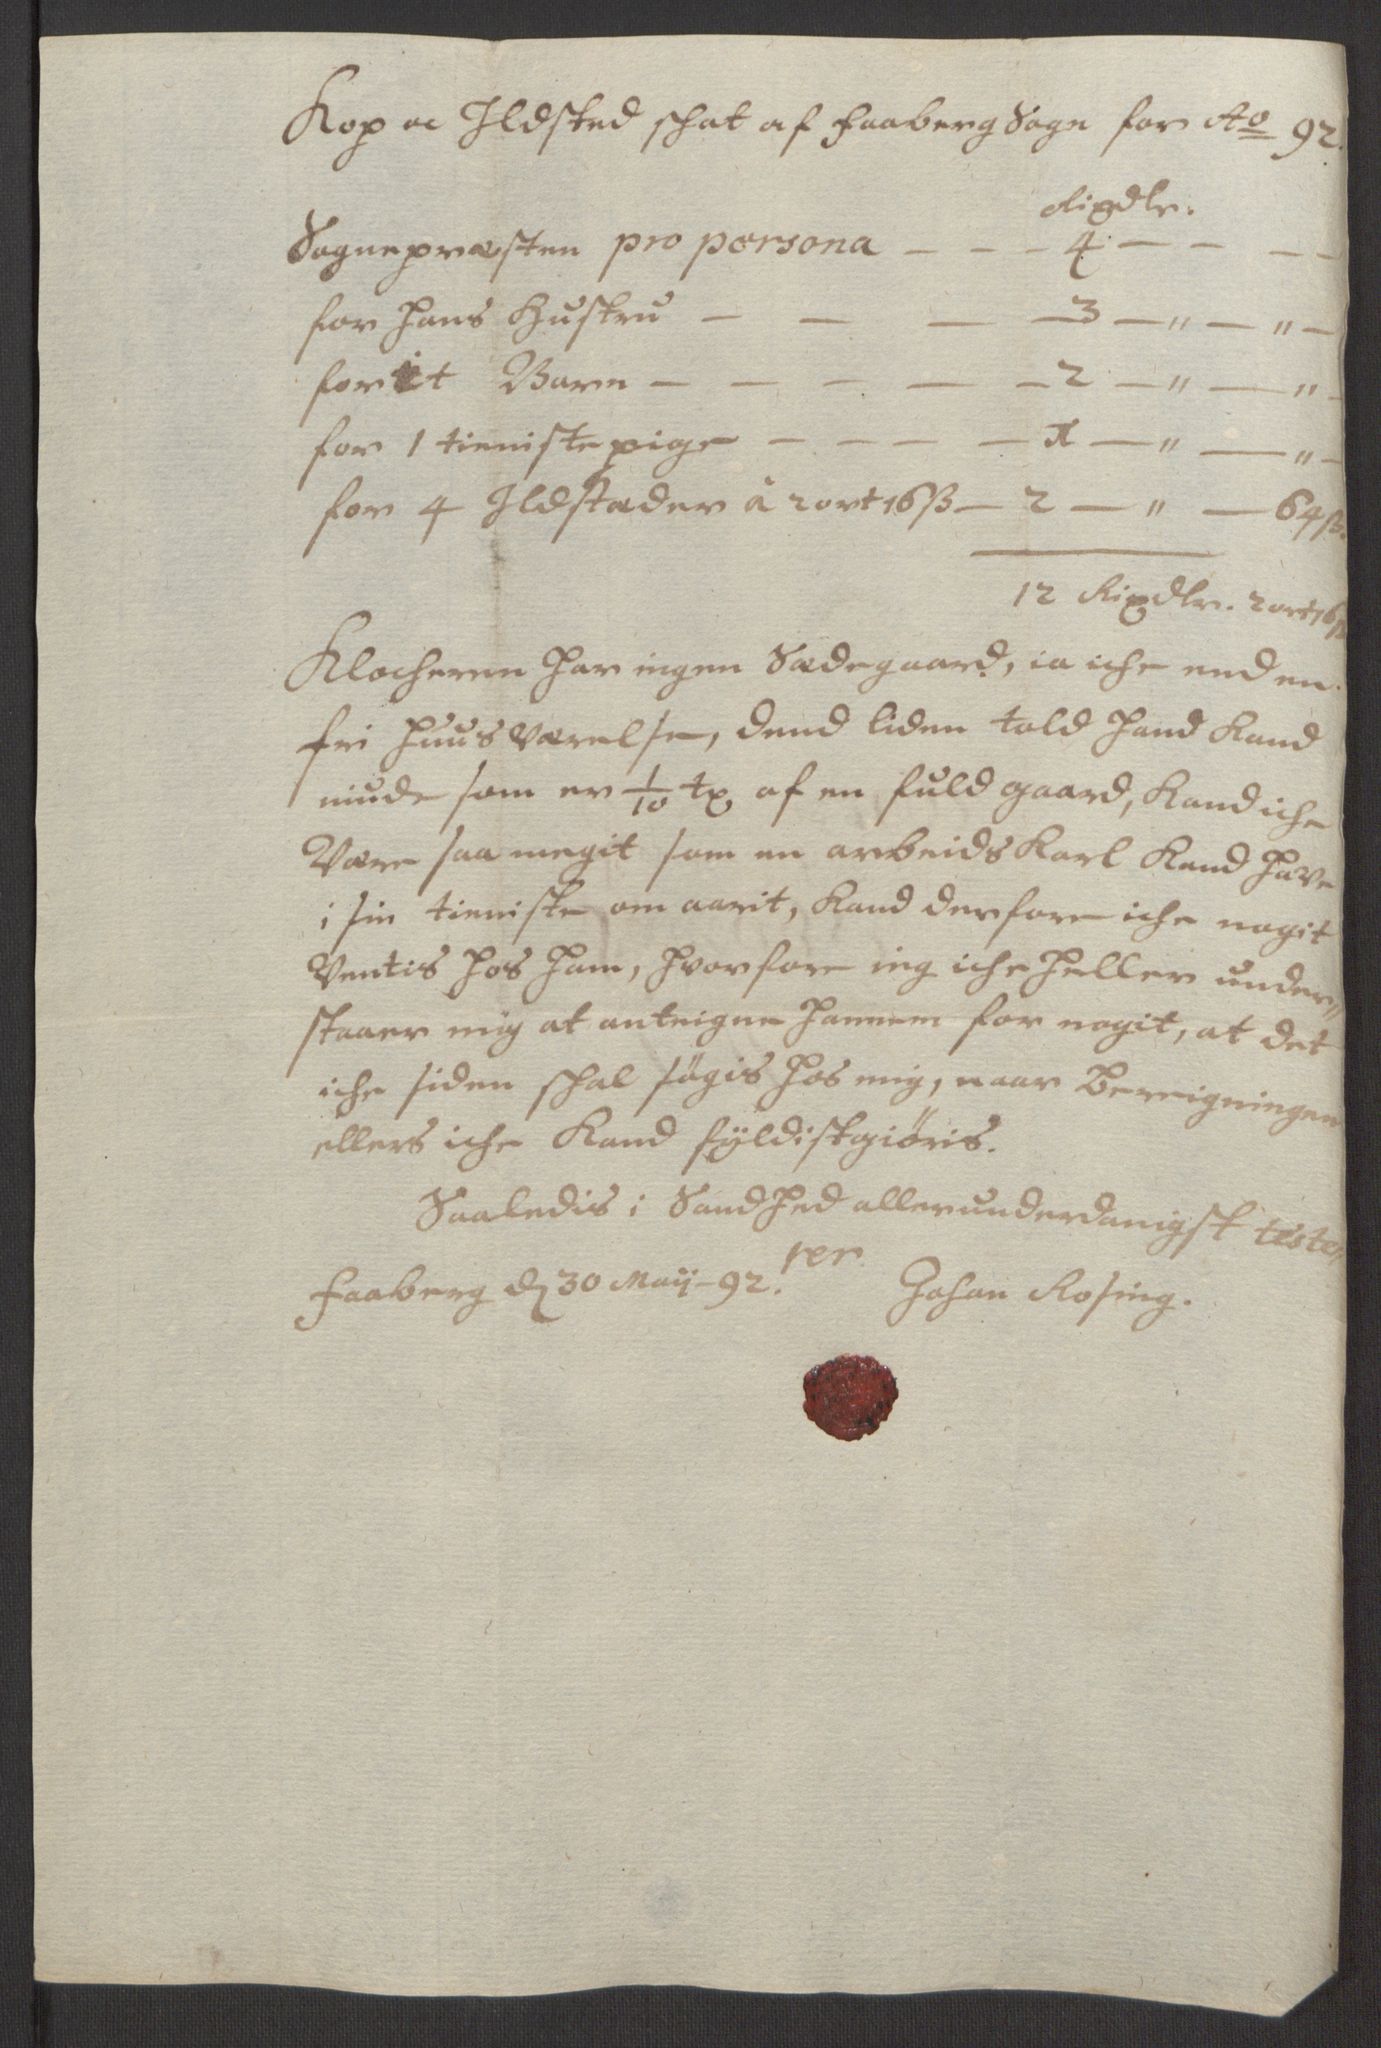 Kop oc Ildsted schat af Faaberg Sogn for Ao 92.
Rixdlr.
Sognepræsten pro persona — — — 4 — — — —
for hans Hustru — — — — 3 — " — " —
for it Barn — — — — — 2 — " — " —
for 1 tieniste pige — — — — 1 — " — " —
for 4 Ildstæder à 2 ort 16 ß — 2 — " — 64 ß.
12 Rixdlr. 2 ort 16 ß
Klocheren har ingen Sædegaard, ia iche end en
fri huus værelse, dend liden told hand Kand
niude som er 1/10 af en fuld gaard, Kand iche
Være saa megit som en arbeids Karl Kand have
i sin tieniste om aarit, Kand derfore iche nogit
Ventis hos ham, hvorfore ieg iche heller under-
staaer mig at anteigne hannem for nogit, at det
iche siden schal søgis hos mig, naar Bereigningen
ellers iche Kand fyldistgiøris.
Saaledis i Sandhed allerunderdanigst tester
Faaberg d 30 Maij - 92.
Johan Rosing.